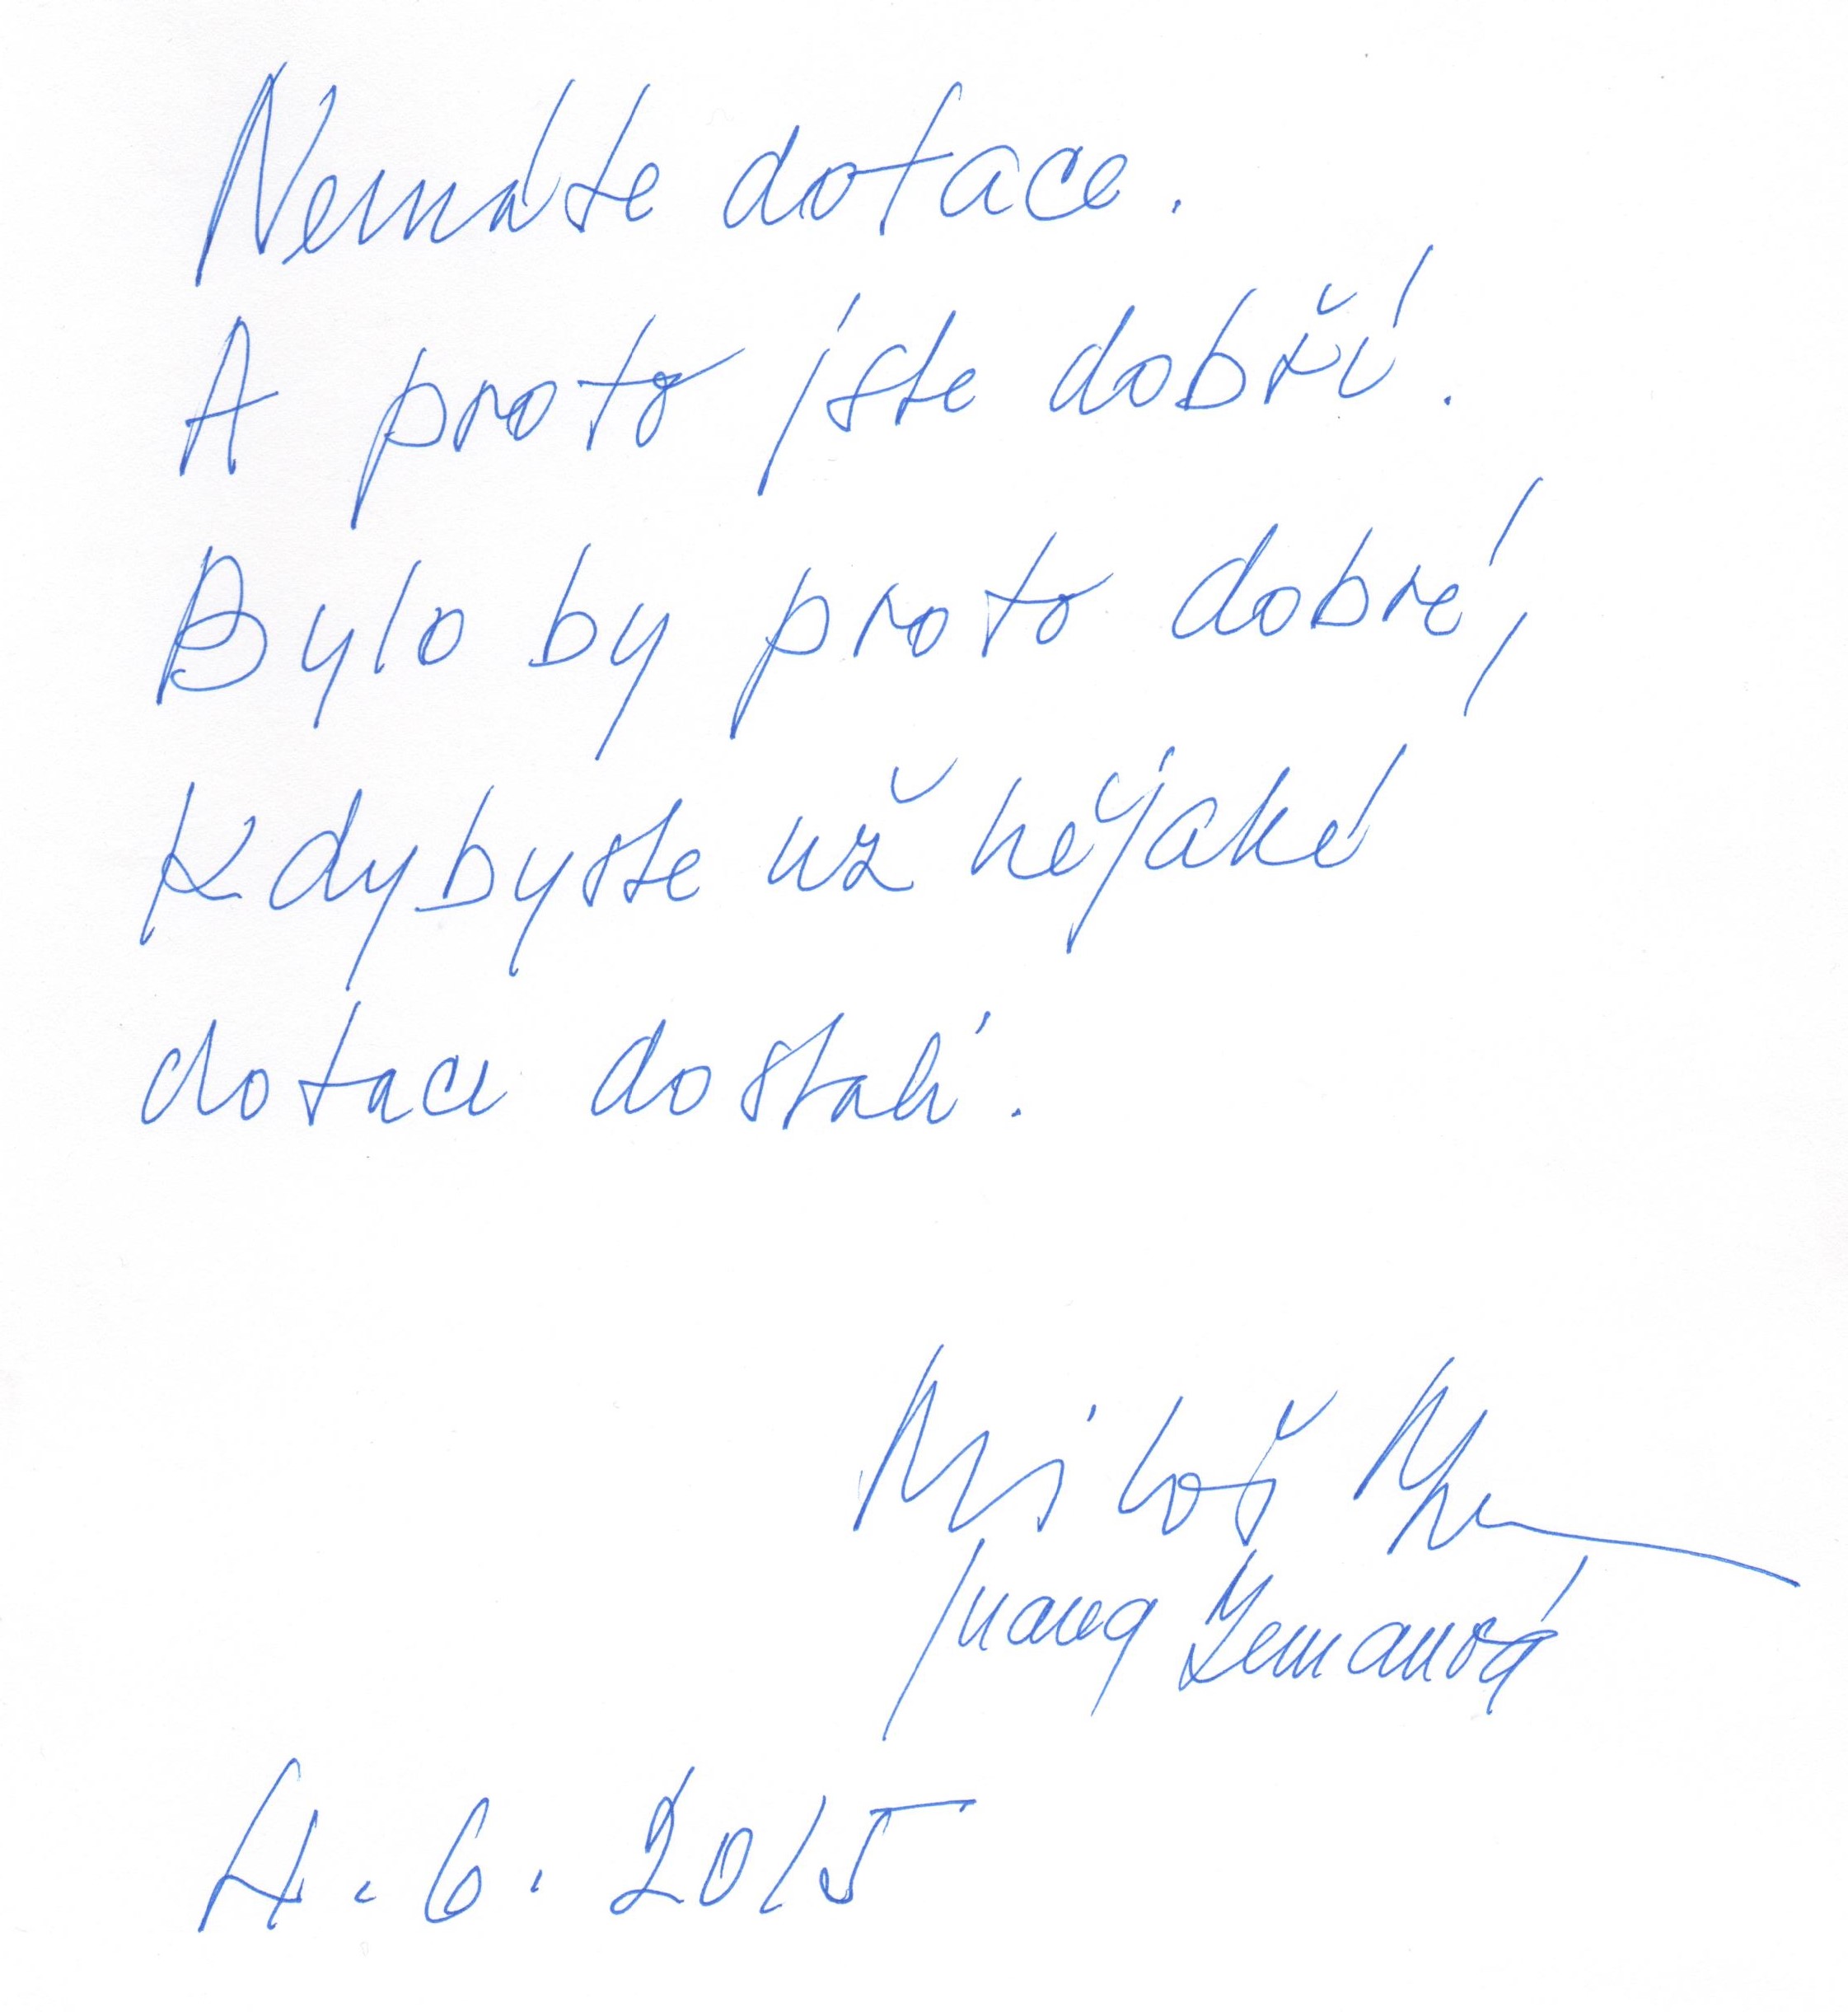 Nemáte dotace.
A proto jste dobří.
Bylo by proto dobré,
kdybyste už nějaké
dotace dostali.
Miloš
Ivana Zemanová
4. 6. 2015